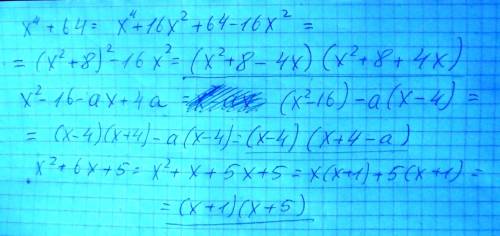 x⁴ + 64 = x⁴ + 16x² + 64 - 16x² =
= (x² + 8)² - 16x² = (x² + 8 - 4x) (x² + 8 + 4x)
x² - 16 - ax + 4a = (x² - 16) - a(x - 4) =
= (x - 4)(x + 4) - a(x - 4) = (x - 4) (x + 4 - a)
x² + 6x + 5 = x² + x + 5x + 5 = x(x + 1) + 5(x + 1) =
= (x + 1)(x + 5)